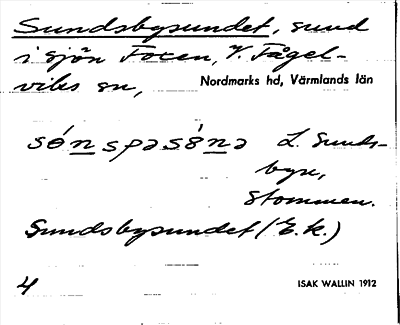 Sundsbysundet, sund
i sjön Foxen, V. Fågel-
viks sn, Nordmarks hd, Värmlands län
só̱nspəsȯ́nə L. Sunds-
byn,
Stommen.
Sundsbysundet (E.k.)
4 ISAK WALLIN 1912